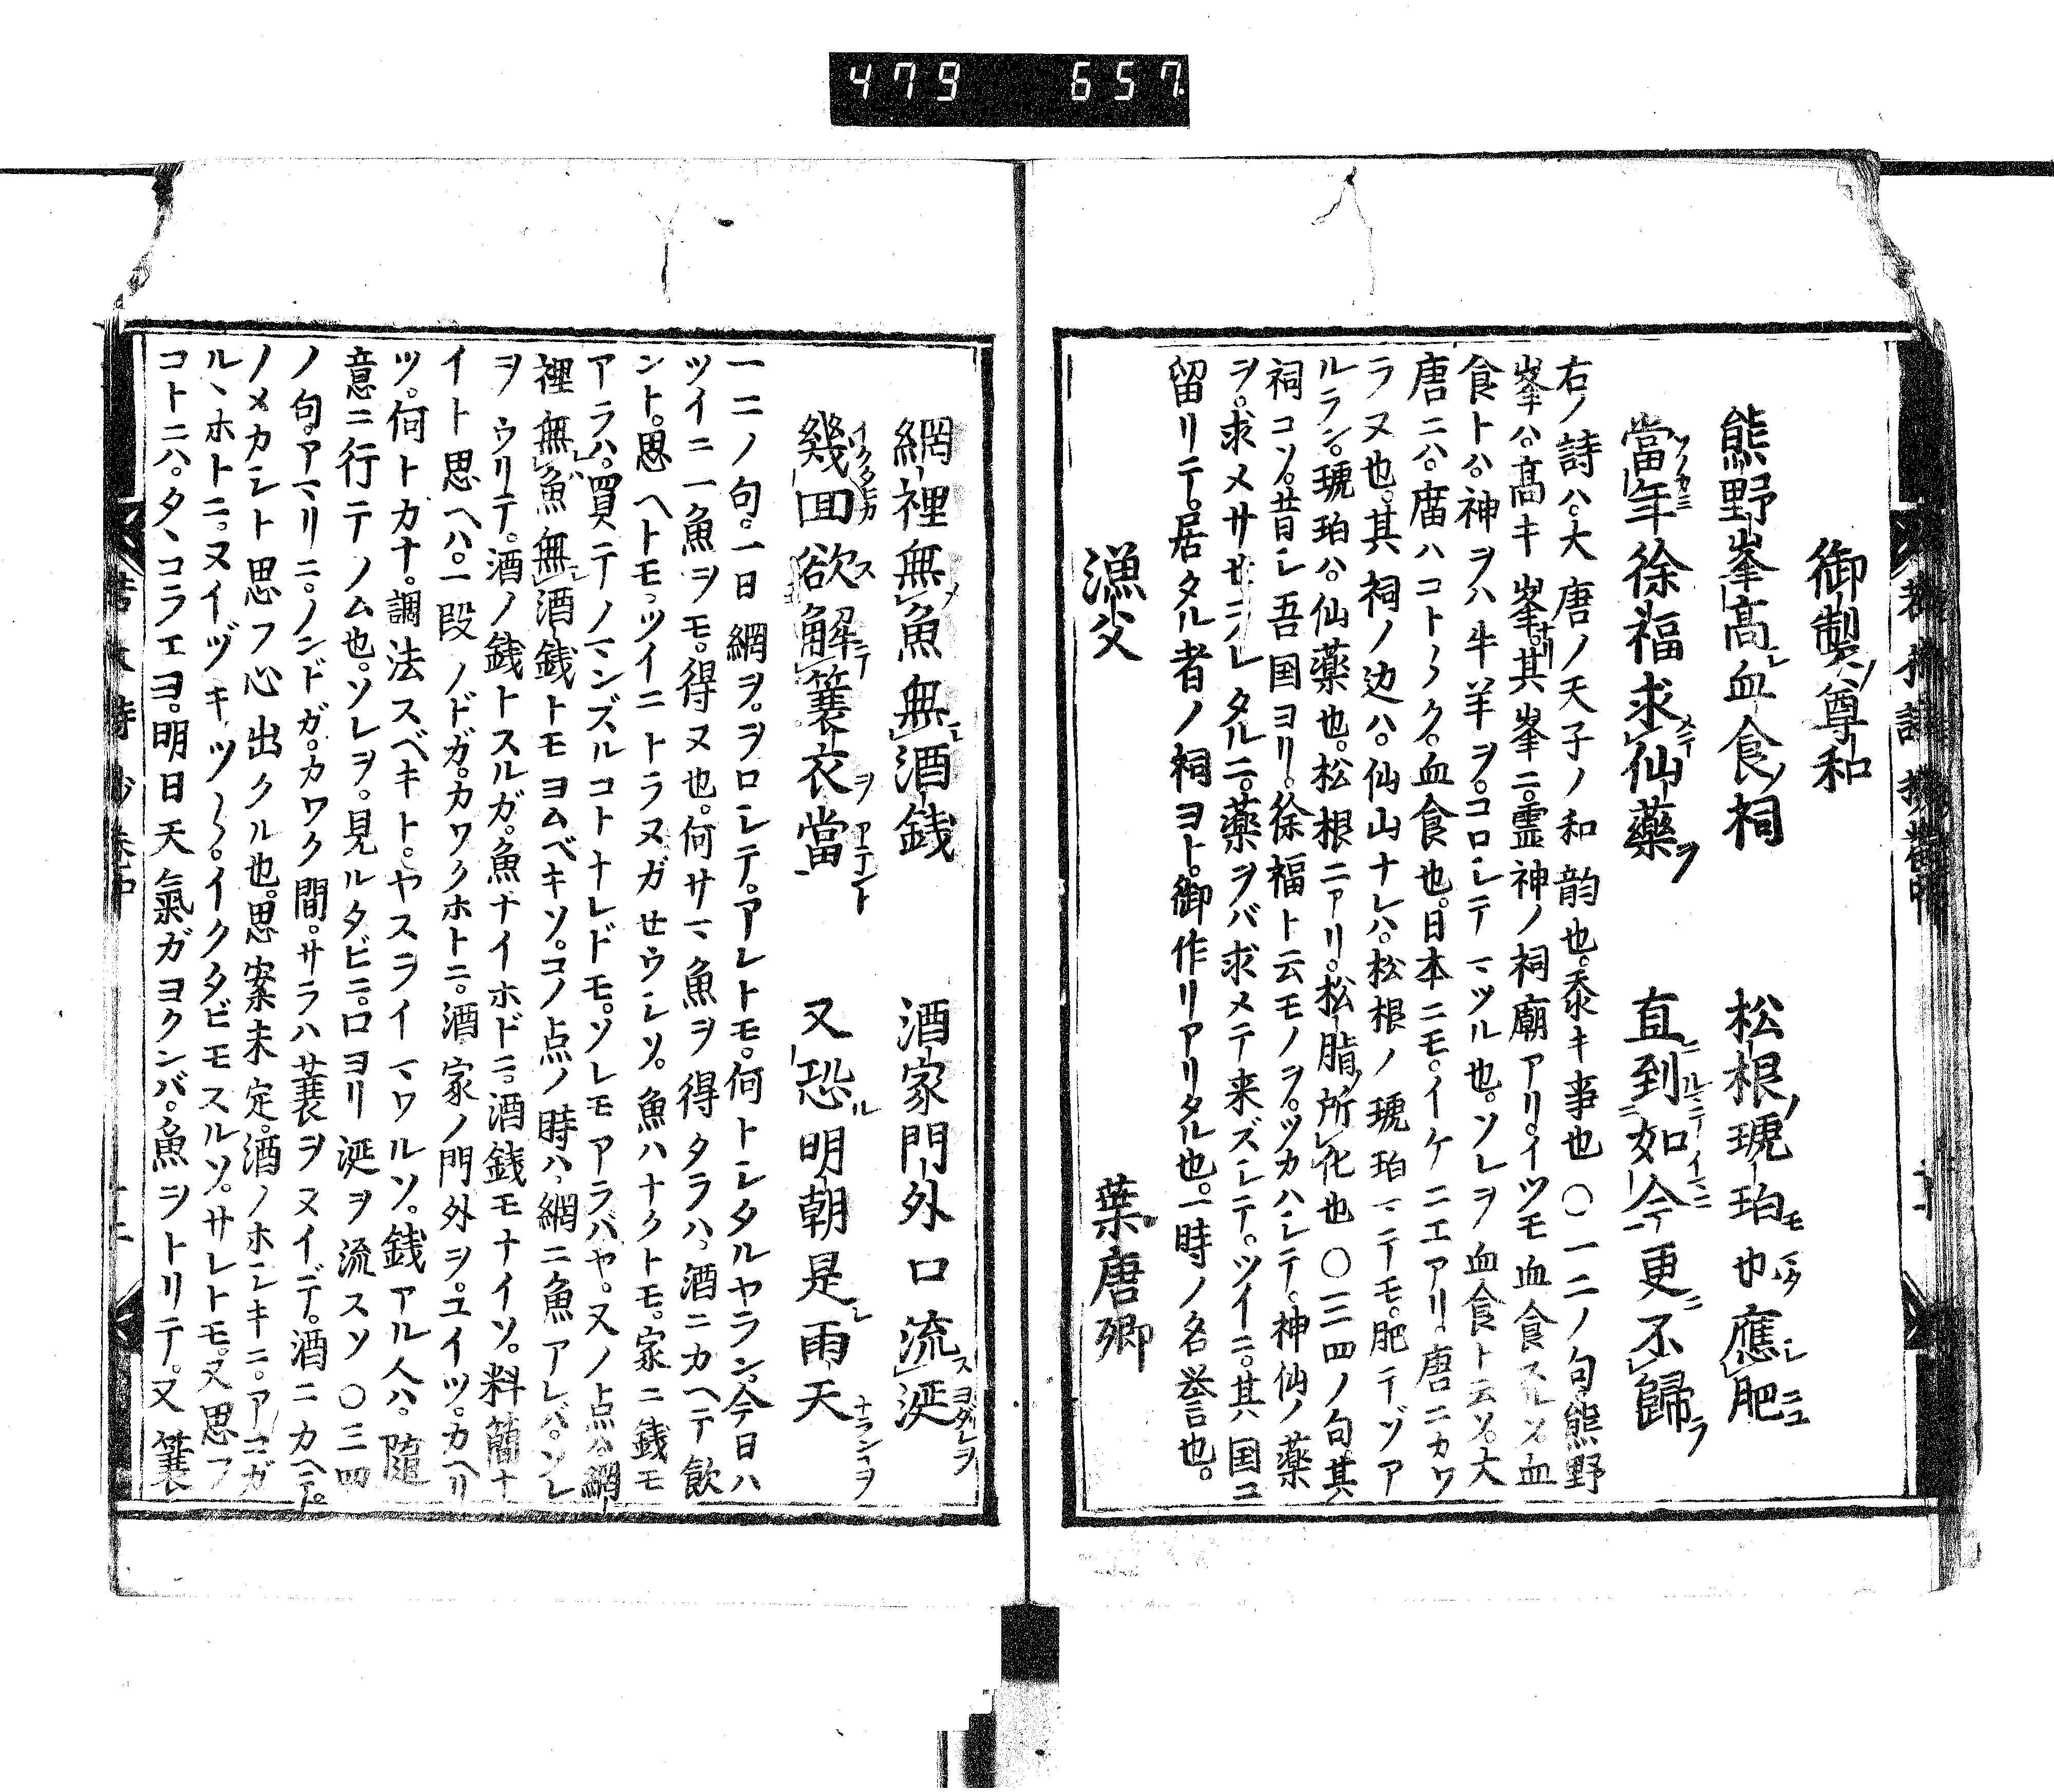 479 657
御製ノ尊和
熊野峯高血食ノ祠　松根ノ琥珀モ也應肥
當年徐福求仙藥ヲ　直到如今更不歸
右ノ詩ハ。大唐ノ天子ノ和韵也。忝キ事也〇一二ノ句。熊野
峯ハ。高キ峯。其峯ニ。霊神ノ祠廟アリ。イツモ血食スルソ。血
食トハ。神ヲハ牛羊ヲ。コロシテマツル也。ソレヲ血食ト云ソ。大
唐ニハ。庿ハコト〱ク。血食也。日本ニモ。イケニエアリ。唐ニカワ
ラヌ也。其祠ノ边ハ。仙山ナレハ。松根ノ琥珀マテモ。肥テヅア
ルラン。琥珀ハ。仙藥也。松根ニアリ。松脂ノ所化也〇三四ノ句其
祠コソ。昔シ吾国ヨリ。徐福ト云モノヲ。ツカハシテ。神仙ノ藥
ヲ。求メサせラレタルニ。藥ヲバ求メテ来ズシテ。ツイニ。其国ニ
留リテ。居タル者ノ祠ヨト。御作リアリタル也。一時ノ名誉也。
漁父　葉唐卿
網裡無魚無酒錢　酒家門外口流涎
幾回欲解蓑衣當　又恐明朝是雨天
一二ノ句。一日網ヲ。ヲロシテ。アレトモ。何トシタルヤラン。今日ハ
ツイニ一魚ヲモ。得ヌ也。何サマ魚ヲ得タラハ。酒ニカヘテ飲
ント。思ヘトモ。ツイニトラヌガせウシソ。魚ハナクトモ。家ニ錢モ
アラハ。買テノマンズルコトナレドモ。ソレモアラバヤ。又ノ点ハ網
裡無魚無酒錢トモヨムベキソ。コノ点ノ時ハ。網ニ魚アレバ。ソレ
ヲウリテ。酒ノ錢トスルガ。魚ナイホドニ。酒錢モナイソ。料簡ナ
イト思ヘハ。一段ノドガ。カワクホトニ。酒家ノ門外ヲ。ユイツ。カヘリ
ツ。何トカナ。調法スベキト。ヤスライマワルソ。錢アル人ハ。随
意ニ行テノム也。ソレヲ。見ルタビニ。口ヨリ涎ヲ流スソ〇三四
ノ句。アマリニ。ノンドガ。カワク間。サラハ蓑ヲヌイデ。酒ニカヘテ。
ノメカシト思フ心出クル也。思案未定。酒ノホシキニ。アコガ
ルヽホトニ。ヌイヅキツ〱。イクタビモスルソ。サレトモ。又思フ
コトニハ。タヽコラエヨ。明日天氣ガヨクンバ。魚ヲトリテ。又蓑